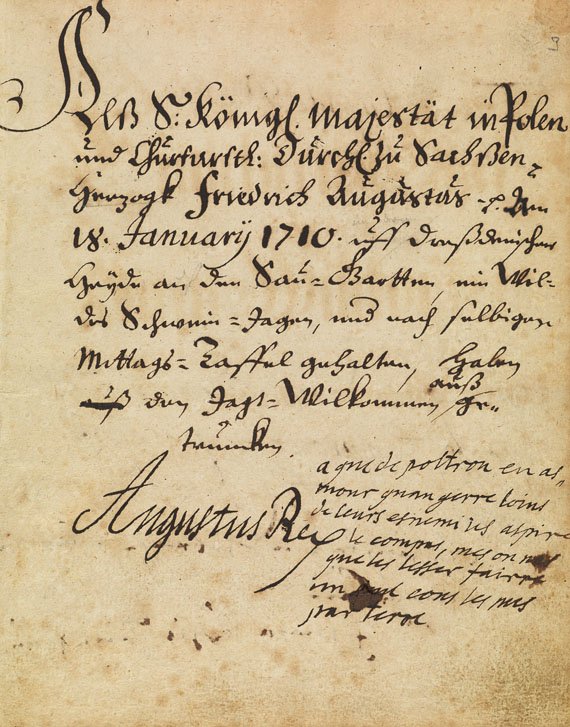 9
Alß S.r Königl. Majestät in Polen
und Churfürstl: Durchl. zu Sachßen,
Herzogk Friedrich Augustus
18. January 1710. uff Dreßdenischer
Heyde an den Sau=Gartten, ein Wil=
des Schwein=Jagen, und nach selbigen
Mittags=Taffel gehalten, haben
auß
auß den Jagt=Wilkommen, ge=
truncken.
Augustus Rex
a que de poltron en a=
mour quan gerre loins
de leurs enemi les aspire
le compas, mes on
que les lesser faire
un cous les mes
par terre